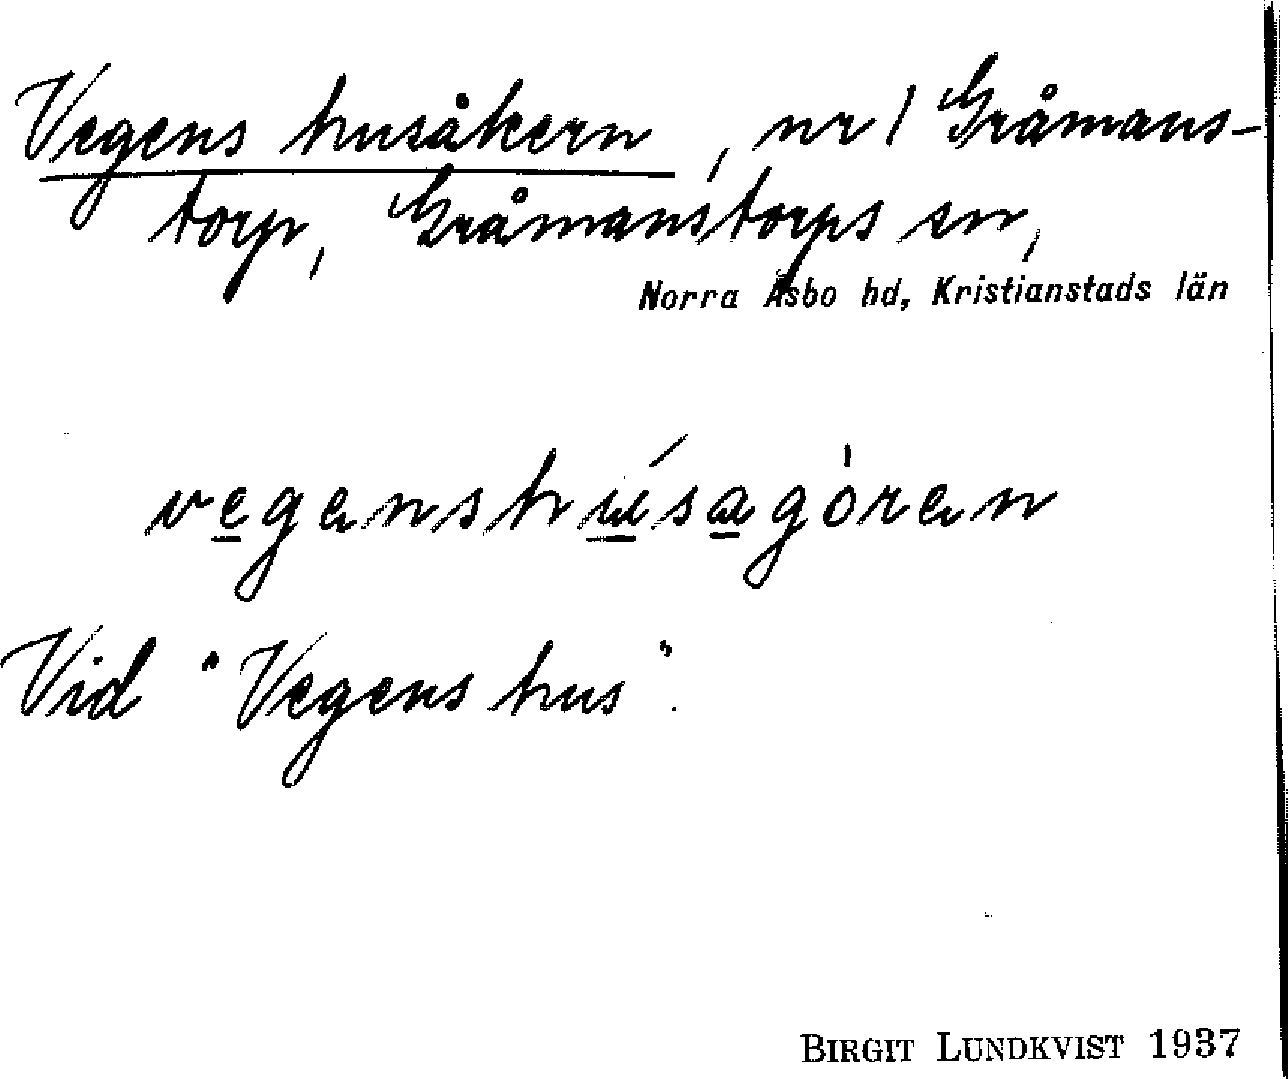 Vegens husåkern, nr 1 Gråmans-
torp, Gråmanstorps sn,
Norra Åsbo hd, Kristianstads län
vegenshúsagòren
Vid "Vegens hus".
BIRGIT LUNDKVIST 1937